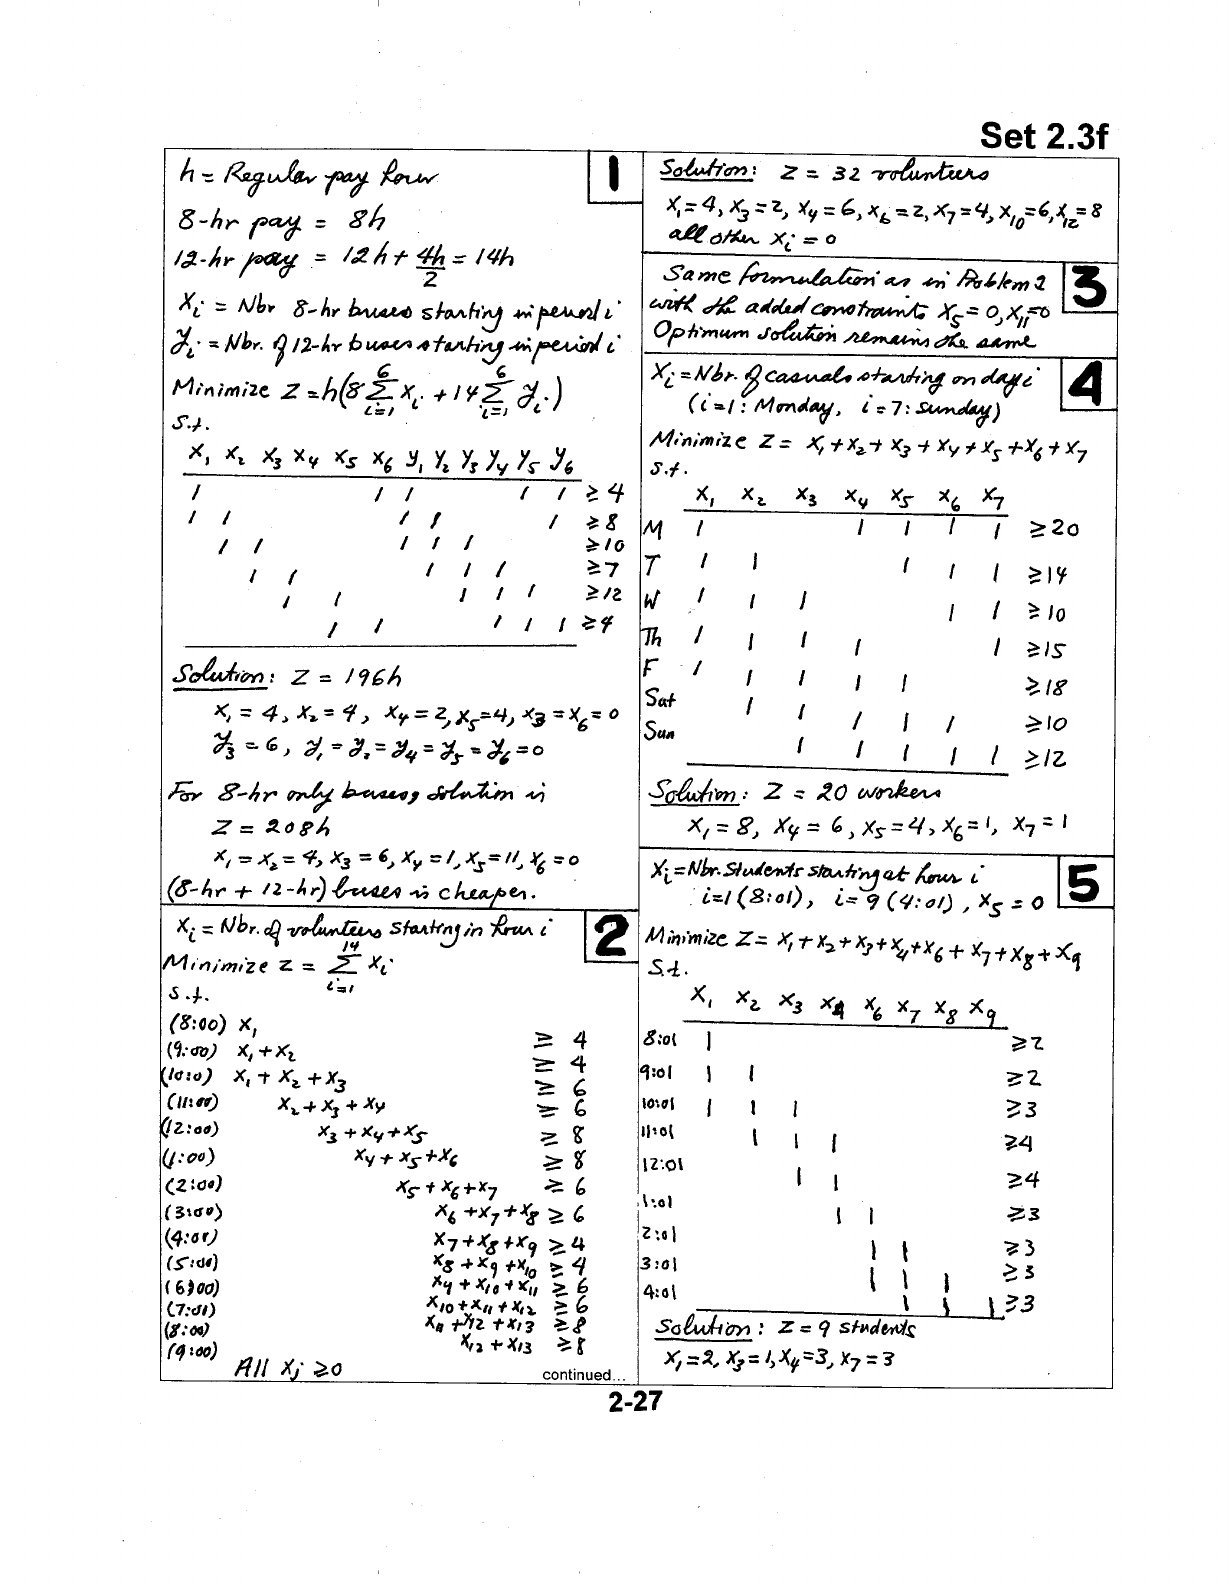 Set 2.3f
1
h = Regular pay hour
8-hr pay = 8h
12-hr pay = 12h + 4h/2 = 14h
Xi = Nbr 8-hr buses starting in period i
yi = Nbr. of 12-hr buses starting in period i
Minimize Z = h(8 6Σi=1 Xi + 14 6Σi=1 yi)
s.t.
X1 X2 X3 X4 X5 X6 y1 y2 y3 y4 y5 y6
1 1 1 1 1 ≥ 4
1 1 1 1 1 ≥ 8
1 1 1 1 1 ≥ 10
1 1 1 1 1 ≥ 7
1 1 1 1 1 ≥ 12
1 1 1 1 1 ≥ 4
Solution: Z = 196h
X1 = 4, X2 = 4, X4 = 2, X5 = 4, X3 = X6 = 0
y3 = 6, y1 = y2 = y4 = y5 = y6 = 0
For 8-hr only buses, solution is
Z = 208h
X1 = X2 = 4, X3 = 6, X4 = 1, X5 = 11, X6 = 0
(8-hr + 12-hr) buses is cheaper.
2
Xi = Nbr. of volunteers starting in hour i
Minimize z = 14Σi=1 Xi
s.t.
(8:00) X1 ≥ 4
(9:00) X1 + X2 ≥ 4
(10:0) X1 + X2 + X3 ≥ 6
(11:00) X2 + X3 + X4 ≥ 6
(12:00) X3 + X4 + X5 ≥ 8
(1:00) X4 + X5 + X6 ≥ 8
(2:00) X5 + X6 + X7 ≥ 6
(3:00) X6 + X7 + X8 ≥ 6
(4:00) X7 + X8 + X9 ≥ 4
(5:00) X8 + X9 + X10 ≥ 4
(6:00) X9 + X10 + X11 ≥ 6
(7:00) X10 + X11 + X12 ≥ 6
(8:00) X11 + X12 + X13 ≥ 8
(9:00) X12 + X13 ≥ 8
All Xj ≥ 0
continued...
Solution: Z = 32 volunteers
X1 = 4, X3 = 2, X4 = 6, X6 = 2, X7 = 4, X10 = 6, X12 = 8
all other Xi = 0
3
Same formulation as in Problem 2
with the added constraints X5 = 0, X11 = 0
Optimum solution remains the same
4
Xi = Nbr. of casuals starting on day i
(i = 1: Monday, i = 7: Sunday)
Minimize Z = X1 + X2 + X3 + X4 + X5 + X6 + X7
s.t.
X1 X2 X3 X4 X5 X6 X7
M 1 1 1 1 1 ≥ 20
T 1 1 1 1 1 ≥ 14
W 1 1 1 1 1 ≥ 10
Th 1 1 1 1 1 ≥ 15
F 1 1 1 1 1 ≥ 18
Sat 1 1 1 1 1 ≥ 10
Sun 1 1 1 1 1 ≥ 12
Solution: Z = 20 workers
X1 = 8, X4 = 6, X5 = 4, X6 = 1, X7 = 1
5
Xi = Nbr. Students starting at hour i
i = 1 (8:01), i = 9 (4:01), X5 = 0
Minimize Z = X1 + X2 + X3 + X4 + X6 + X7 + X8 + X9
S.t.
X1 X2 X3 X4 X6 X7 X8 X9
8:01 1 ≥ 2
9:01 1 1 ≥ 2
10:01 1 1 1 ≥ 3
11:01 1 1 1 ≥ 4
12:01 1 1 ≥ 4
1:01 1 1 ≥ 3
2:01 1 1 ≥ 3
3:01 1 1 1 ≥ 3
4:01 1 1 1 ≥ 3
Solution: Z = 9 students
X1 = 2, X3 = 1, X4 = 3, X7 = 3
2-27